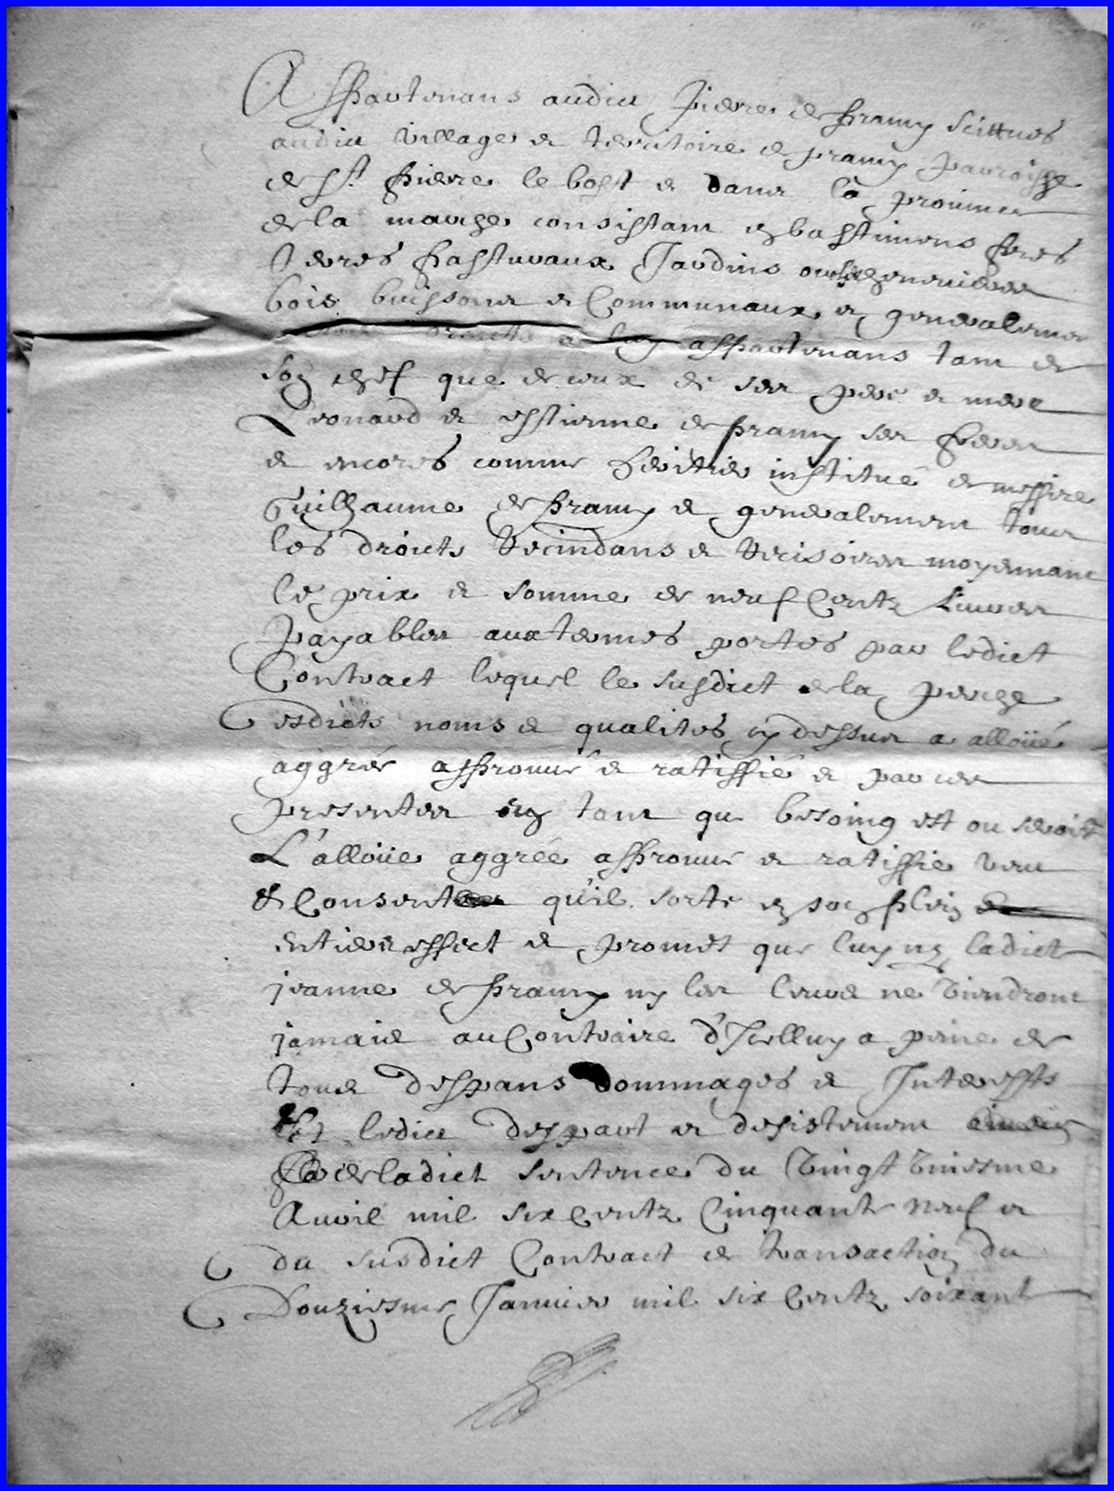 Appartenans audict Pierre de pramy scittues
audict village et territoire de pramy parroisse
de St. Pierre le bost et dans la province
de la marche consistant en bastimens pres
terres pasturaux Jardins ouches chenevieres
bois buissons et Communaux et generalement
droicts a luy appartenans tant de
son chef que de ceux de ses pere et mere
Leonard et estienne de pramy ses freres
et encores comme heritier institué de messire
Guilhaume de pramy et generalement tous
les droicts rescindans et rescisoires moyennant
le prix et somme de neuf Centz Livres
Payables aux termes portes par ledict
Contract lequel le susdict de la perche
esdicts noms et qualites cy dessus a alloüé
aggréé approuvé et ratiffié et par ces
presentes en tant que besoing est ou seroit
L'alloüe aggrée approuve et ratiffie veut
et Consent qu'il sorte en son plein
entier effect et promet que luy ny ladict
jeanne de pramy ny les leurs ne viendront
jamais au Contraire d'Icelluy a peine de
tous despans dommages et Interests
Et ledict despart et desistement
de ladict sentence du vingt uniesme
Avril mil six Centz Cinquante neuf et
du susdict Contract de transaction du
Douziesme Janvier mil six Centz soixant